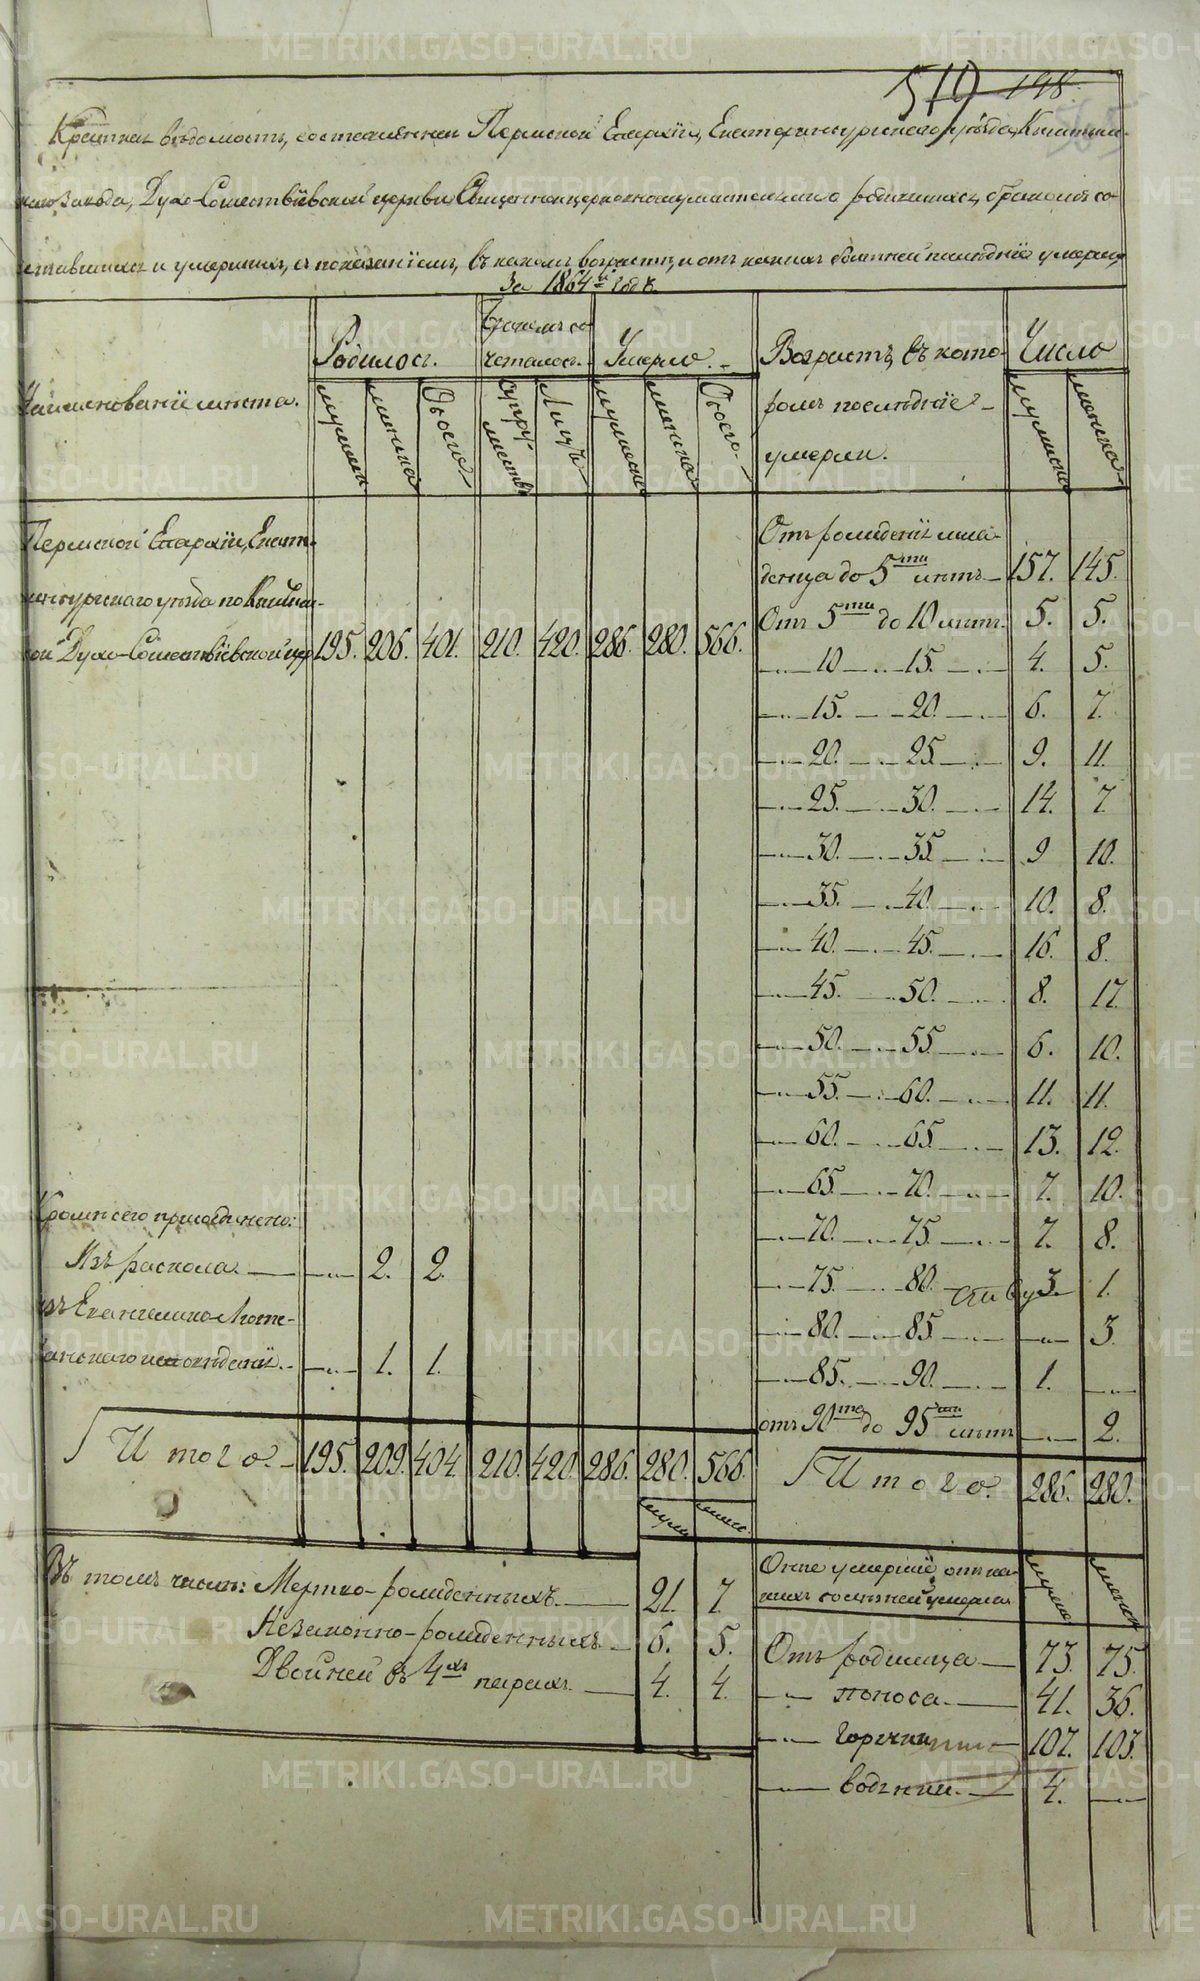 519 198
Краткая вѣдомость, составленная Пермской Епархіи, Екатеринбургскаго уѣзда, Кыштым-
скаго завода, Духо-Сошествіевской церкви Священноцерковнослужителями о родившихся, бракомъ со-
четавшихся и умершихъ, съ показаніемъ, въ какомъ возрастѣ, и отъ какихъ болѣзней послѣдніе умерли,
За 1864й годъ.
Наименованіе мѣста.
Родилось.
Бракомъ со-
четалось.
Умерло.
Возрастъ, въ кото-
ромъ послѣдніе
умерли.
Число
мужеска
женска
Обоего
супру-
жествъ
Лицъ
мужеска
женска
Обоего.
мужеска
женска
Пермской Епархіи, Екате-
ринбургскаго уѣзда по Кыштым-
ской Духо-Сошествіевской цер 195. 206. 401. 210. 420. 286. 280. 566.
Отъ рожденія мла-
денца до 5ти лѣтъ 157. 145.
Отъ 5ти до 10 лѣтъ. 5. 5.
10 15. 4. 5.
15. 20. 6. 7.
20. 25. 9. 11.
25. 30. 14. 7
30. 35. 9 10.
35. 40. 10. 8.
40. 45. 16. 8.
45. 50. 8. 17.
50. 55. 6. 10.
55. 60. 11. 11.
60. 65. 13. 12.
65. 70. 7. 10.
70. 75. 7. 8.
75. 80. 3. 1.
80. 85. 3.
85. 90. 1.
отъ 90та до 95ти лѣтъ 2.
Итого. 286. 280.
Кромѣ сего присоединено:
Изъ раскола 2. 2.
изъ Евангелико-Люте-
ранскаго исповѣданія. 1. 1.
Итого. 195. 209. 404. 210. 420. 286. 280. 566.
муж.
женс.
Въ томъ числѣ: Мертво-рожденныхъ. 21. 7.
Незаконно-рожденныхъ 6. 5.
Двойней въ 4хъ парахъ. 4. 4.
Оные умершіе отъ ка-
кихъ болѣзней умерли
мужеска
женска
Отъ родимца 73. 75.
поноса. 41. 36.
горячки 107. 103.
водянки. 4.
METRIKI.GASO-URAL.RU